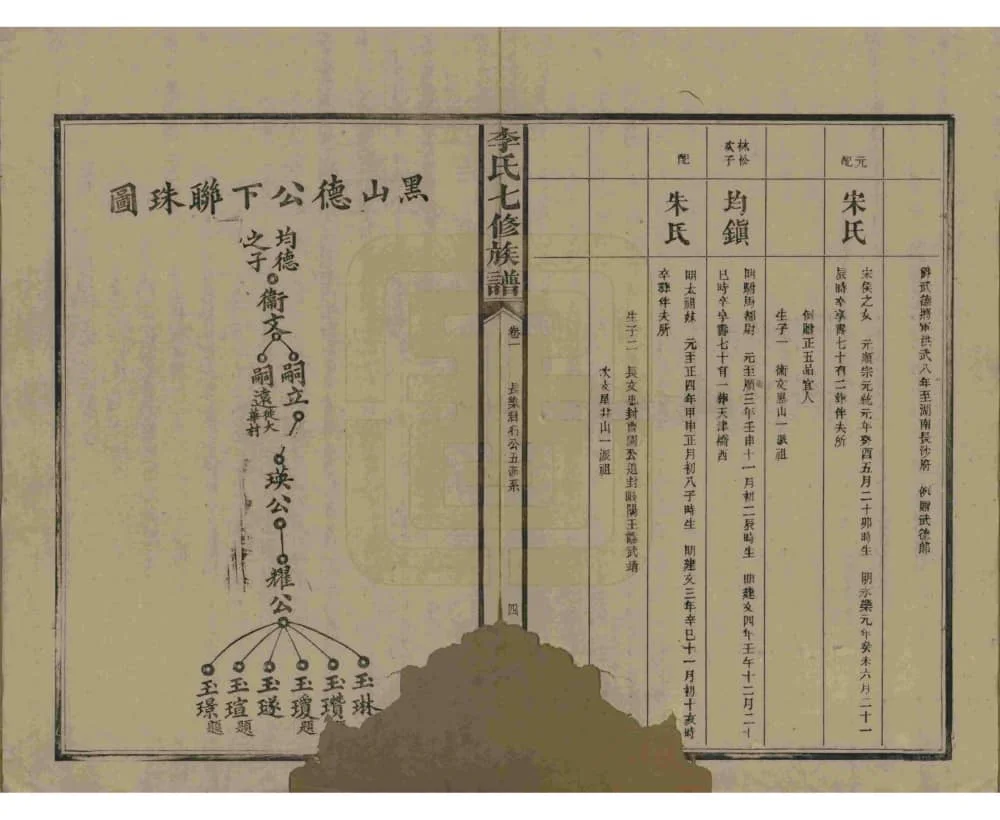 爵武德將軍洪武八年至湖南長沙府 例贈武德郎
元配
宋氏
宋侯之女 元順宗元統元年癸酉五月二十卯時生 明永樂元年癸未六月二十一
辰時卒享壽七十有二葬伴夫所
例贈正五品宜人
生子一 衛文黑山一派祖
林松次子
均鎮
明駙馬都尉 元至順三年壬申十一月初二辰時生 明建文四年壬午十二月二十
巳時卒享壽七十有一葬天津橋西
配
朱氏
明太祖妹 元至正四年甲申正月初八子時生 明建文三年辛巳十一月初十亥時
卒葬伴夫所
生子二 長文忠封曹國公追封隴陽王諡武靖
次文星井山一派祖
李氏七修族譜
卷一
公五派系
四
黑山德公下聯珠圖
均德之子
衞文
嗣立
嗣遠
徙大華村
瑛公
耀公
玉琳
玉瓚題
玉瓊題
玉璲
玉瑄題
玉璟題